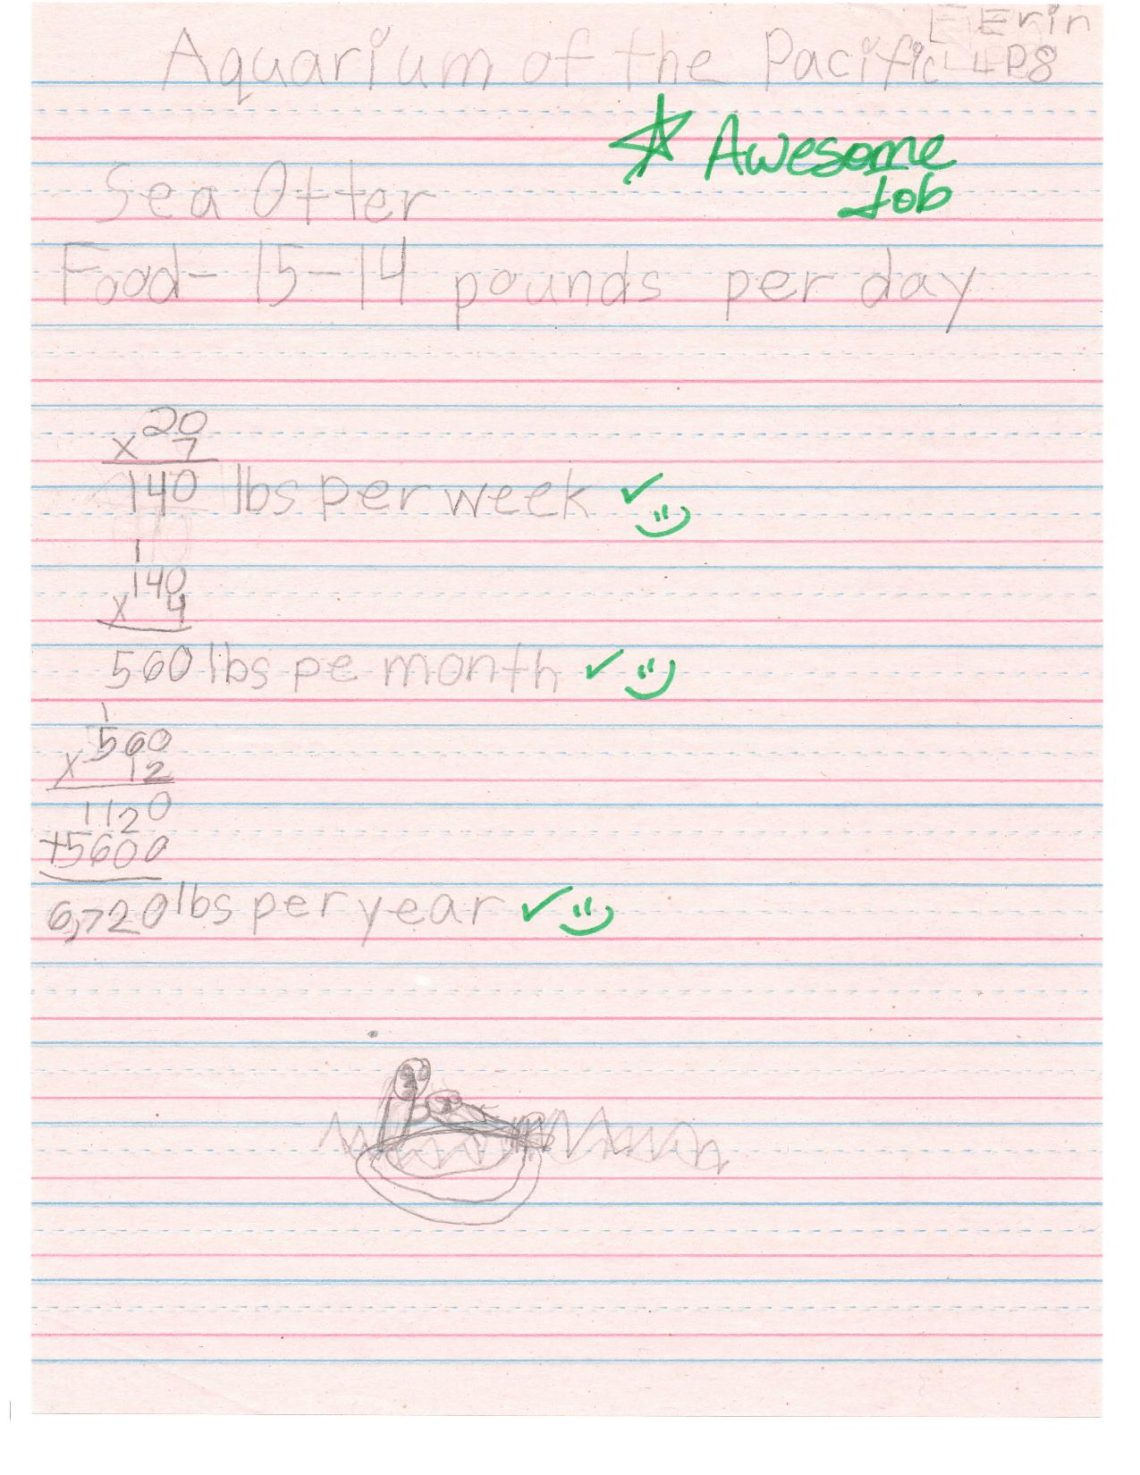 Erin
Aquarium of the Pacific
☆ Awesome
Job
Sea Otter
Food- 15-14 pounds per day
20
x 7
140 lbs per week ✓
1
140
x 4
560 lbs pe month ✓
1
560
x 12
1120
+5600
6,720 lbs per year ✓